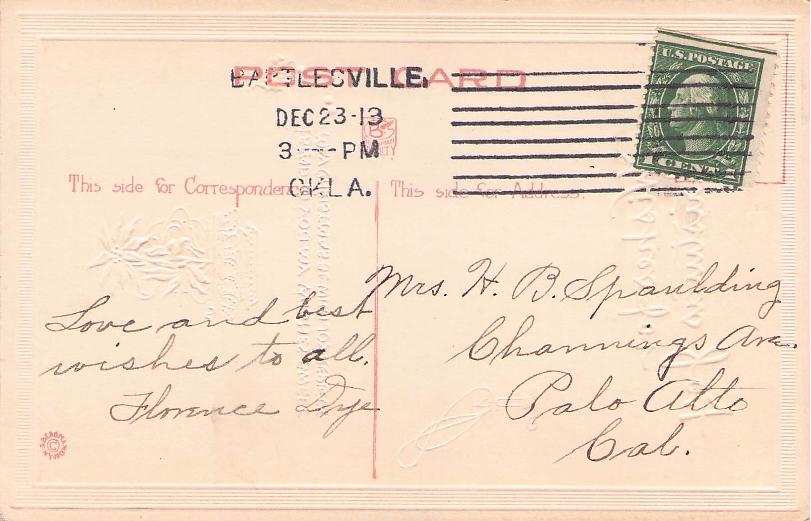 POST CARD
BARTLESVILLE,
DEC 23-13
3 -- PM
OKLA.
U.S. POSTAGE
1 CENT 1
This side for Correspondence
This side for Address.
Love and best
wishes to all.
Florence Dye
Mrs. H. B. Spaulding
Channings Ave.
Palo Alto
Cal.